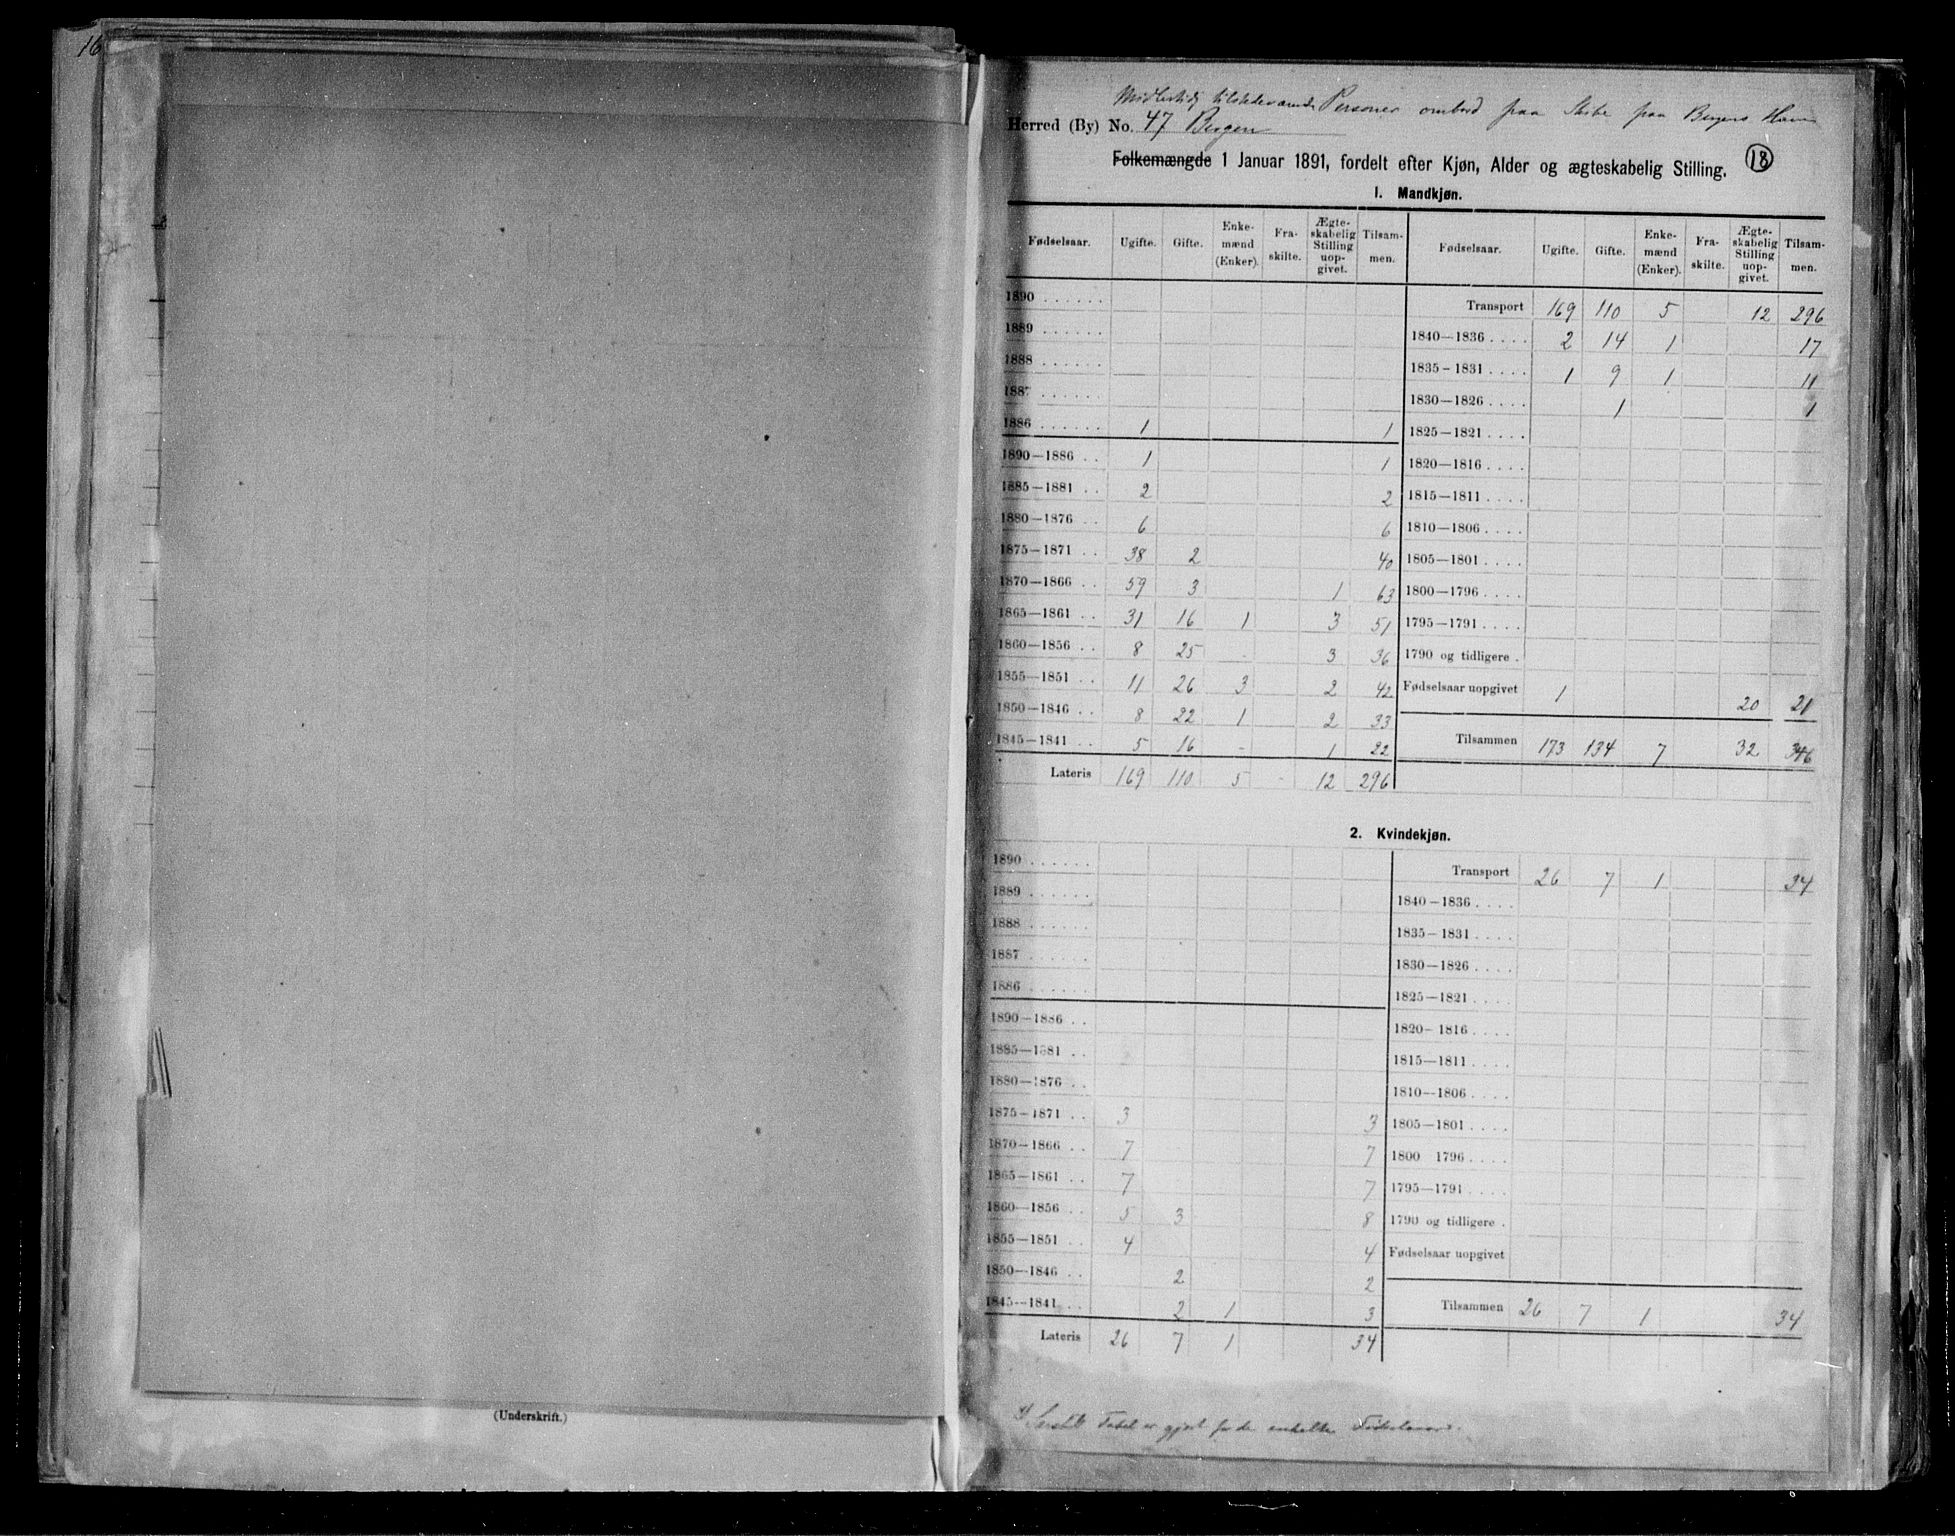 16
(Underskrift.)
Midlertidig tilstedeværende Personer ombord paa Skibe paa Bergens Havn
Herred (By) No. 47 Bergen
Folkemængde 1 Januar 1891, fordelt efter Kjøn, Alder og ægteskabelig Stilling. 18
1. Mandkjøn.
Fødselsaar. Ugifte. Gifte. Enkemænd (Enker). Fraskilte. Ægteskabelig Stilling uopgivet. Tilsammen.
1890 . . . . . .
1889 . . . . . .
1888 . . . . . .
1887 . . . . . .
1886 . . . . . . 1 1
1890—1886 . . 1 1
1885—1881 . . 2 2
1880—1876 . . 6 6
1875—1871 . . 38 2 40
1870—1866 . . 59 3 1 63
1865—1861 . . 31 16 1 3 51
1860—1856 . . 8 25 - 3 36
1855—1851 . . 11 26 3 2 42
1850—1846 . . 8 22 1 2 33
1845—1841 . . 5 16 - 1 22
Lateris 169 110 5 - 12 296
Fødselsaar. Ugifte. Gifte. Enkemænd (Enker). Fraskilte. Ægteskabelig Stilling uopgivet. Tilsammen.
Transport 169 110 5 12 296
1840—1836 . . . . 2 14 1 17
1835—1831 . . . . 1 9 1 11
1830—1826 . . . . 1 1
1825—1821 . . . .
1820—1816 . . . .
1815—1811 . . . .
1810—1806 . . . .
1805—1801 . . . .
1800—1796 . . . .
1795—1791 . . . .
1790 og tidligere .
Fødselsaar uopgivet 1 20 21
Tilsammen 173 134 7 32 346
2. Kvindekjøn.
1890 . . . . . .
1889 . . . . . .
1888 . . . . . .
1887 . . . . . .
1886 . . . . . .
1890—1886 . .
1885—1881 . .
1880—1876 . .
1875—1871 . . 3 3
1870—1866 . . 7 7
1865—1861 . . 7 7
1860—1856 . . 5 3 8
1855—1851 . . 4 4
1850—1846 . . 2 2
1845—1841 . . 2 1 3
Lateris 26 7 1 34
Transport 26 7 1 34
1840—1836 . . . .
1835—1831 . . . .
1830—1826 . . . .
1825—1821 . . . .
1820—1816 . . . .
1815—1811 . . . .
1810—1806 . . . .
1805—1801 . . . .
1800 1796 . . . .
1795—1791 . . . .
1790 og tidligere .
Fødselsaar uopgivet
Tilsammen 26 7 1 34
Tabel er gjort for de enkelte